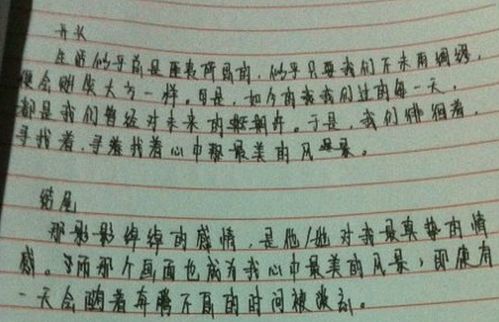 开头
生活似乎前是匪夷所思的,似乎只要我们不未雨绸缪,
便会 一样。但是,如今的我们过的每一天,
都是我们曾经对未来的 。于是,我们徘徊着,
寻找着,寻 找着心中最美的风景。
结尾
那影影绰绰的感情,是他/她对我最真挚的情
感。而那个画面也成为我心中最美的风景,即使有
一天会随着奔腾不息的时间被 。